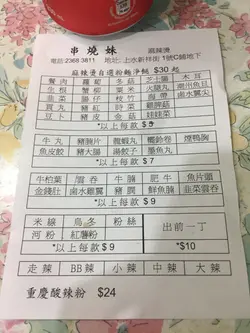 串燒妹 麻辣燙
電話 2368 3811 地址: 上水新祥街 1號C舖地下
麻辣燙自選粉麵淨餸 $30 起
蟹肉 蘿蔔 冬菇 芝士腸 木耳
生根 蟹柳 粟米 火腿 潮州魚旦
韭菜 腸仔 枝竹 南瓜 鹵水翼尖
生菜 豬紅 時菜 雞脾菇
豆卜 豬皮 金菇
*以上每款 $
牛丸 豬腩片 龍蝦丸 獅鈴卷 煙鴨胸
魚皮餃 豬大腸 湯餃子 墨魚丸
*以上每款 $ 7
牛柏葉 雲吞 龍蝦 肥牛 魚片頭
金錢肚 鹵水雞翼 豬潤 鮮魷魚 韭菜雲吞
*以上每款 $ 9
米線 烏冬 粉絲 出前一丁
河粉 紅薯粉
*以上每款 $ 9 *$10
走辣 BB辣 小辣 中辣 大辣
重慶酸辣粉 $24